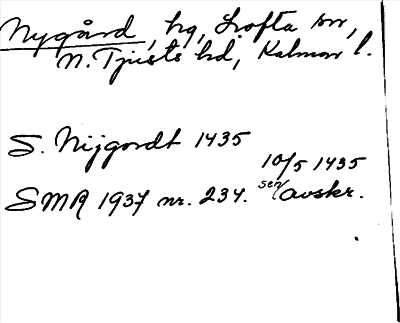 Nygård, hg, Lofta sn,
N. Tjusts hd, Kalmar l.
S. Nijgordt 1435
10/5 1435
SMR 1937 nr. 234. sen/avskr.